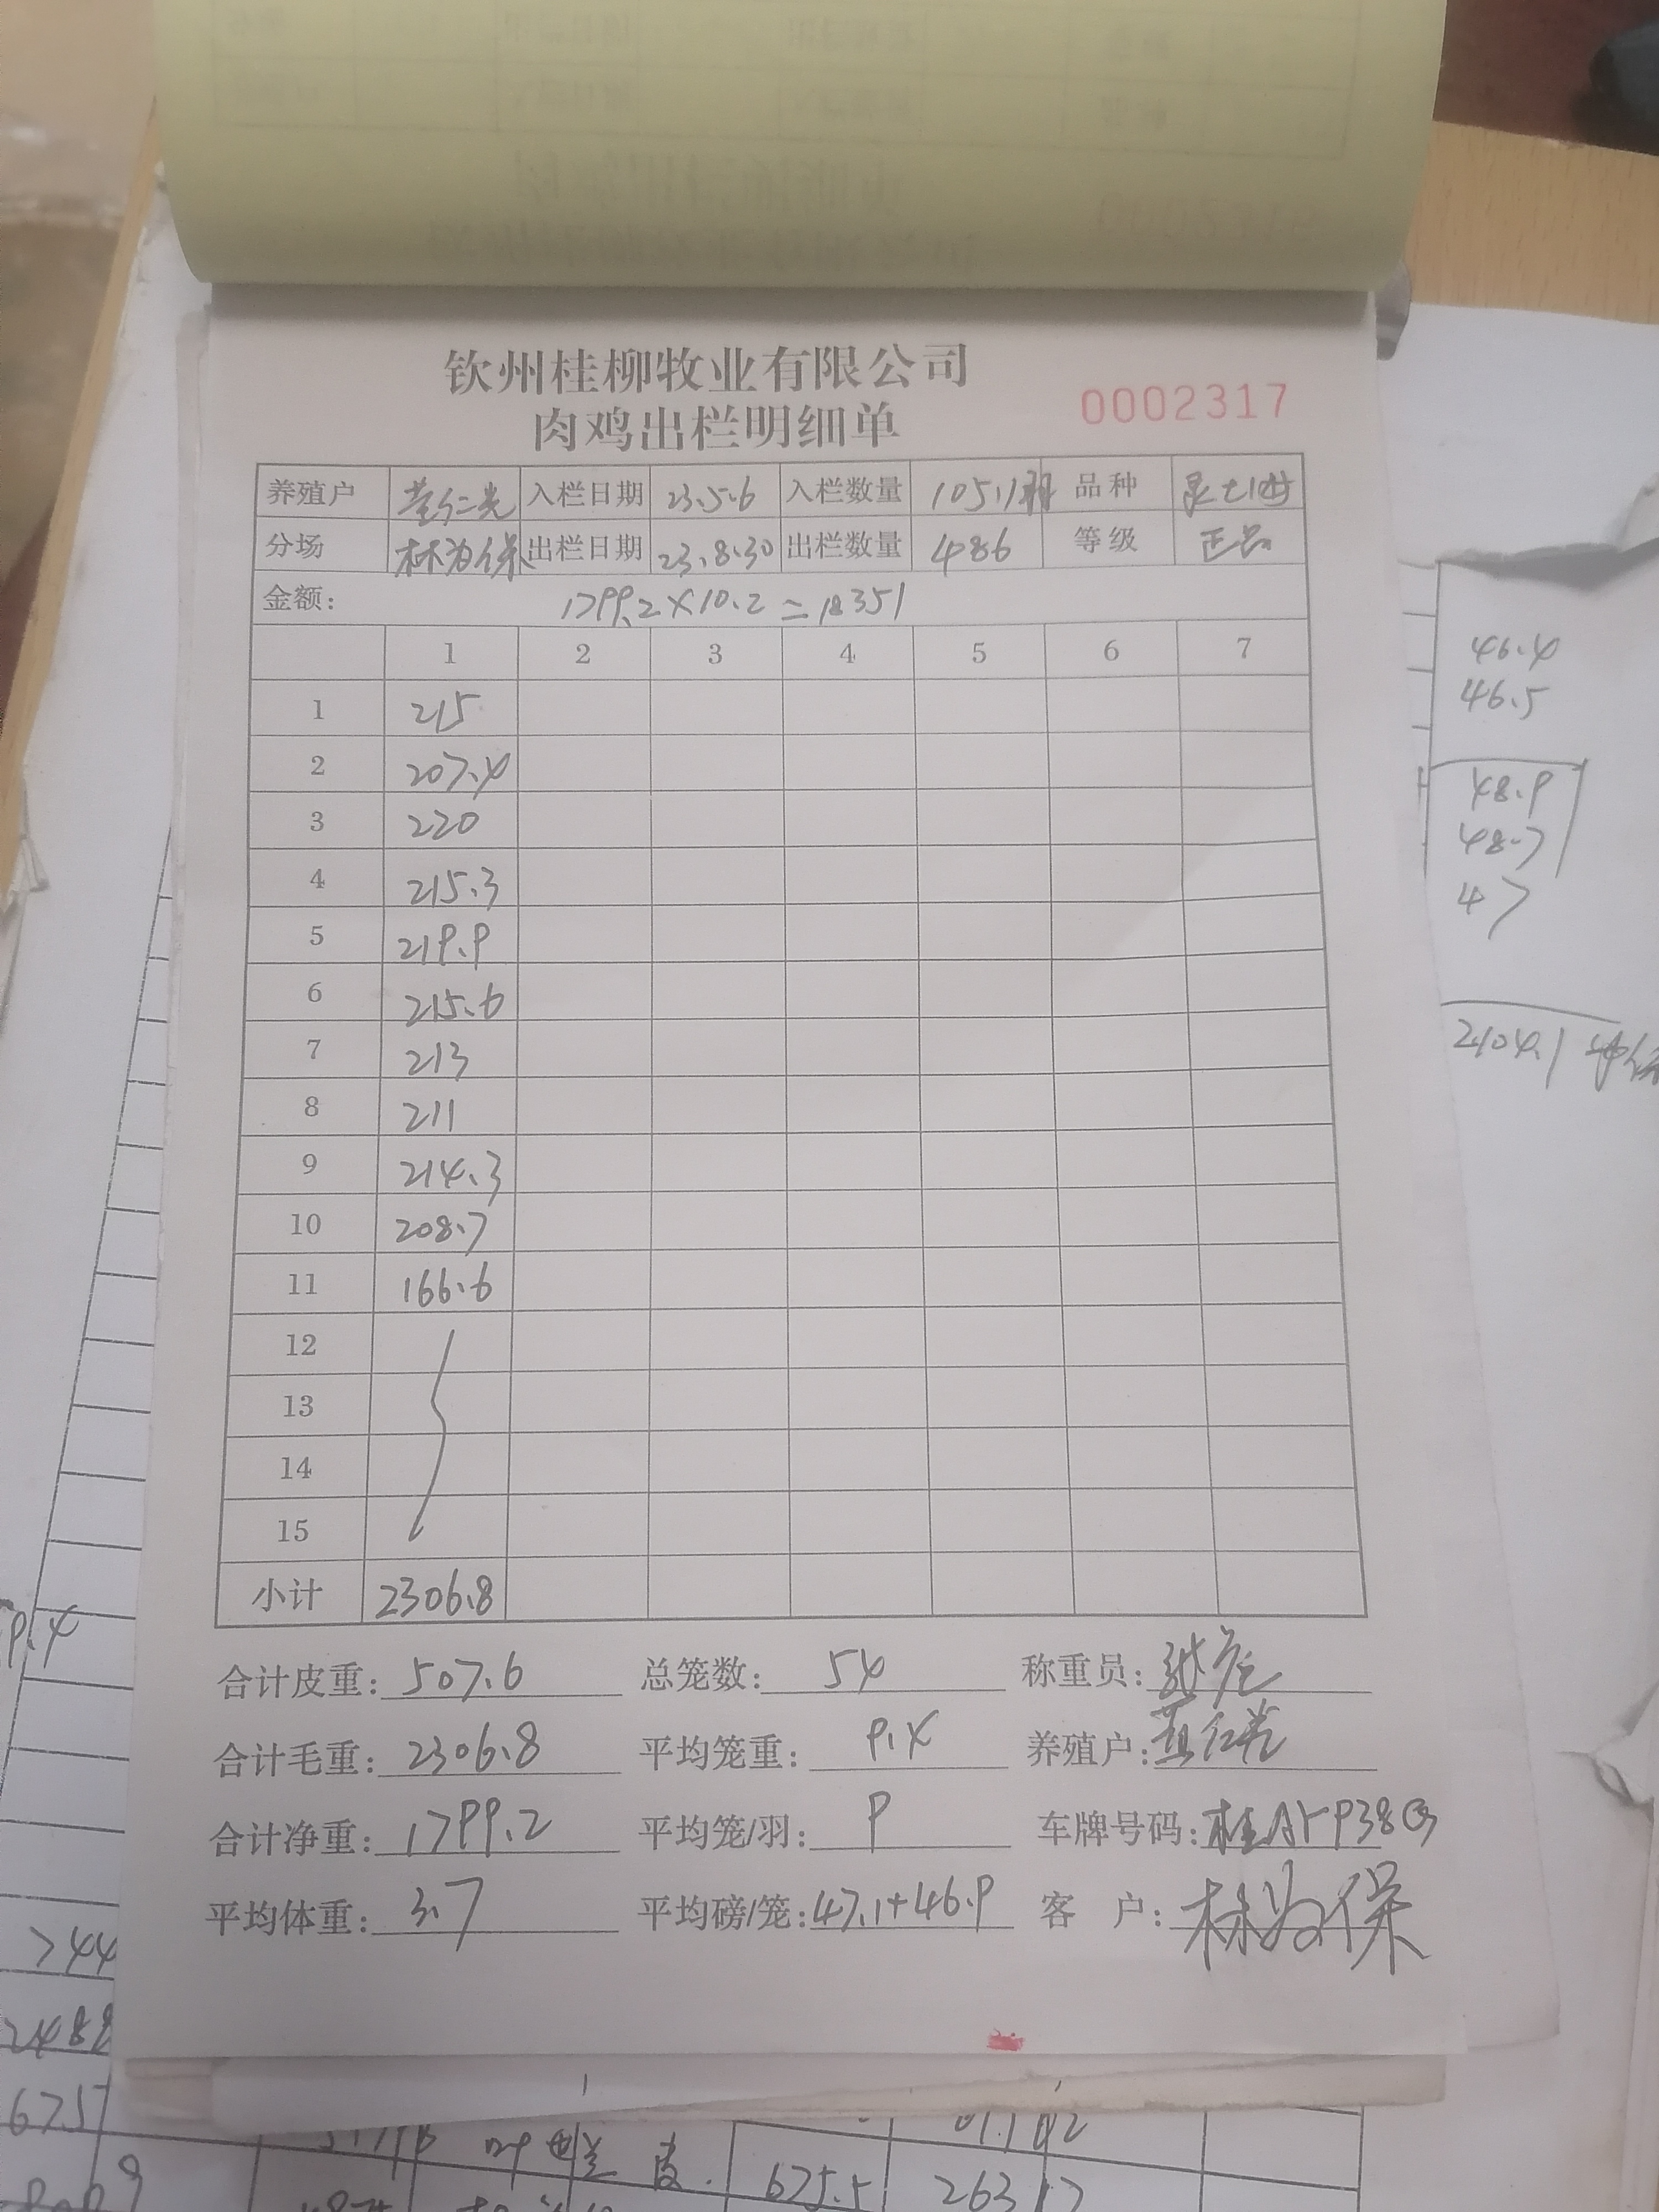 钦州桂柳牧业有限公司
肉鸡出栏明细单
0002317
养殖户 入栏日期 23.5.6 入栏数量 品种
分场 林为保 出栏日期 23.8.30 出栏数量 486 等级 正品
金额: 1799.2×10.2=18351
1 2 3 4 5 6 7
1 215
2 207.4
3 220
4 215.3
5 219.9
6 215.6
7 213
8 211
9 214.3
10 208.7
11 166.6
12
13
14
15
小计 2306.8
合计皮重: 507.6 总笼数: 54 称重员:
合计毛重: 2306.8 平均笼重: 9.4 养殖户:
合计净重: 1799.2 平均笼/羽: 9 车牌号码:
平均体重: 3.7 平均磅/笼: 47.1+46.9 客户: 林为保
46.4
46.5
48.9
48.7
47
2104.1
9.4
744
2488
675.5